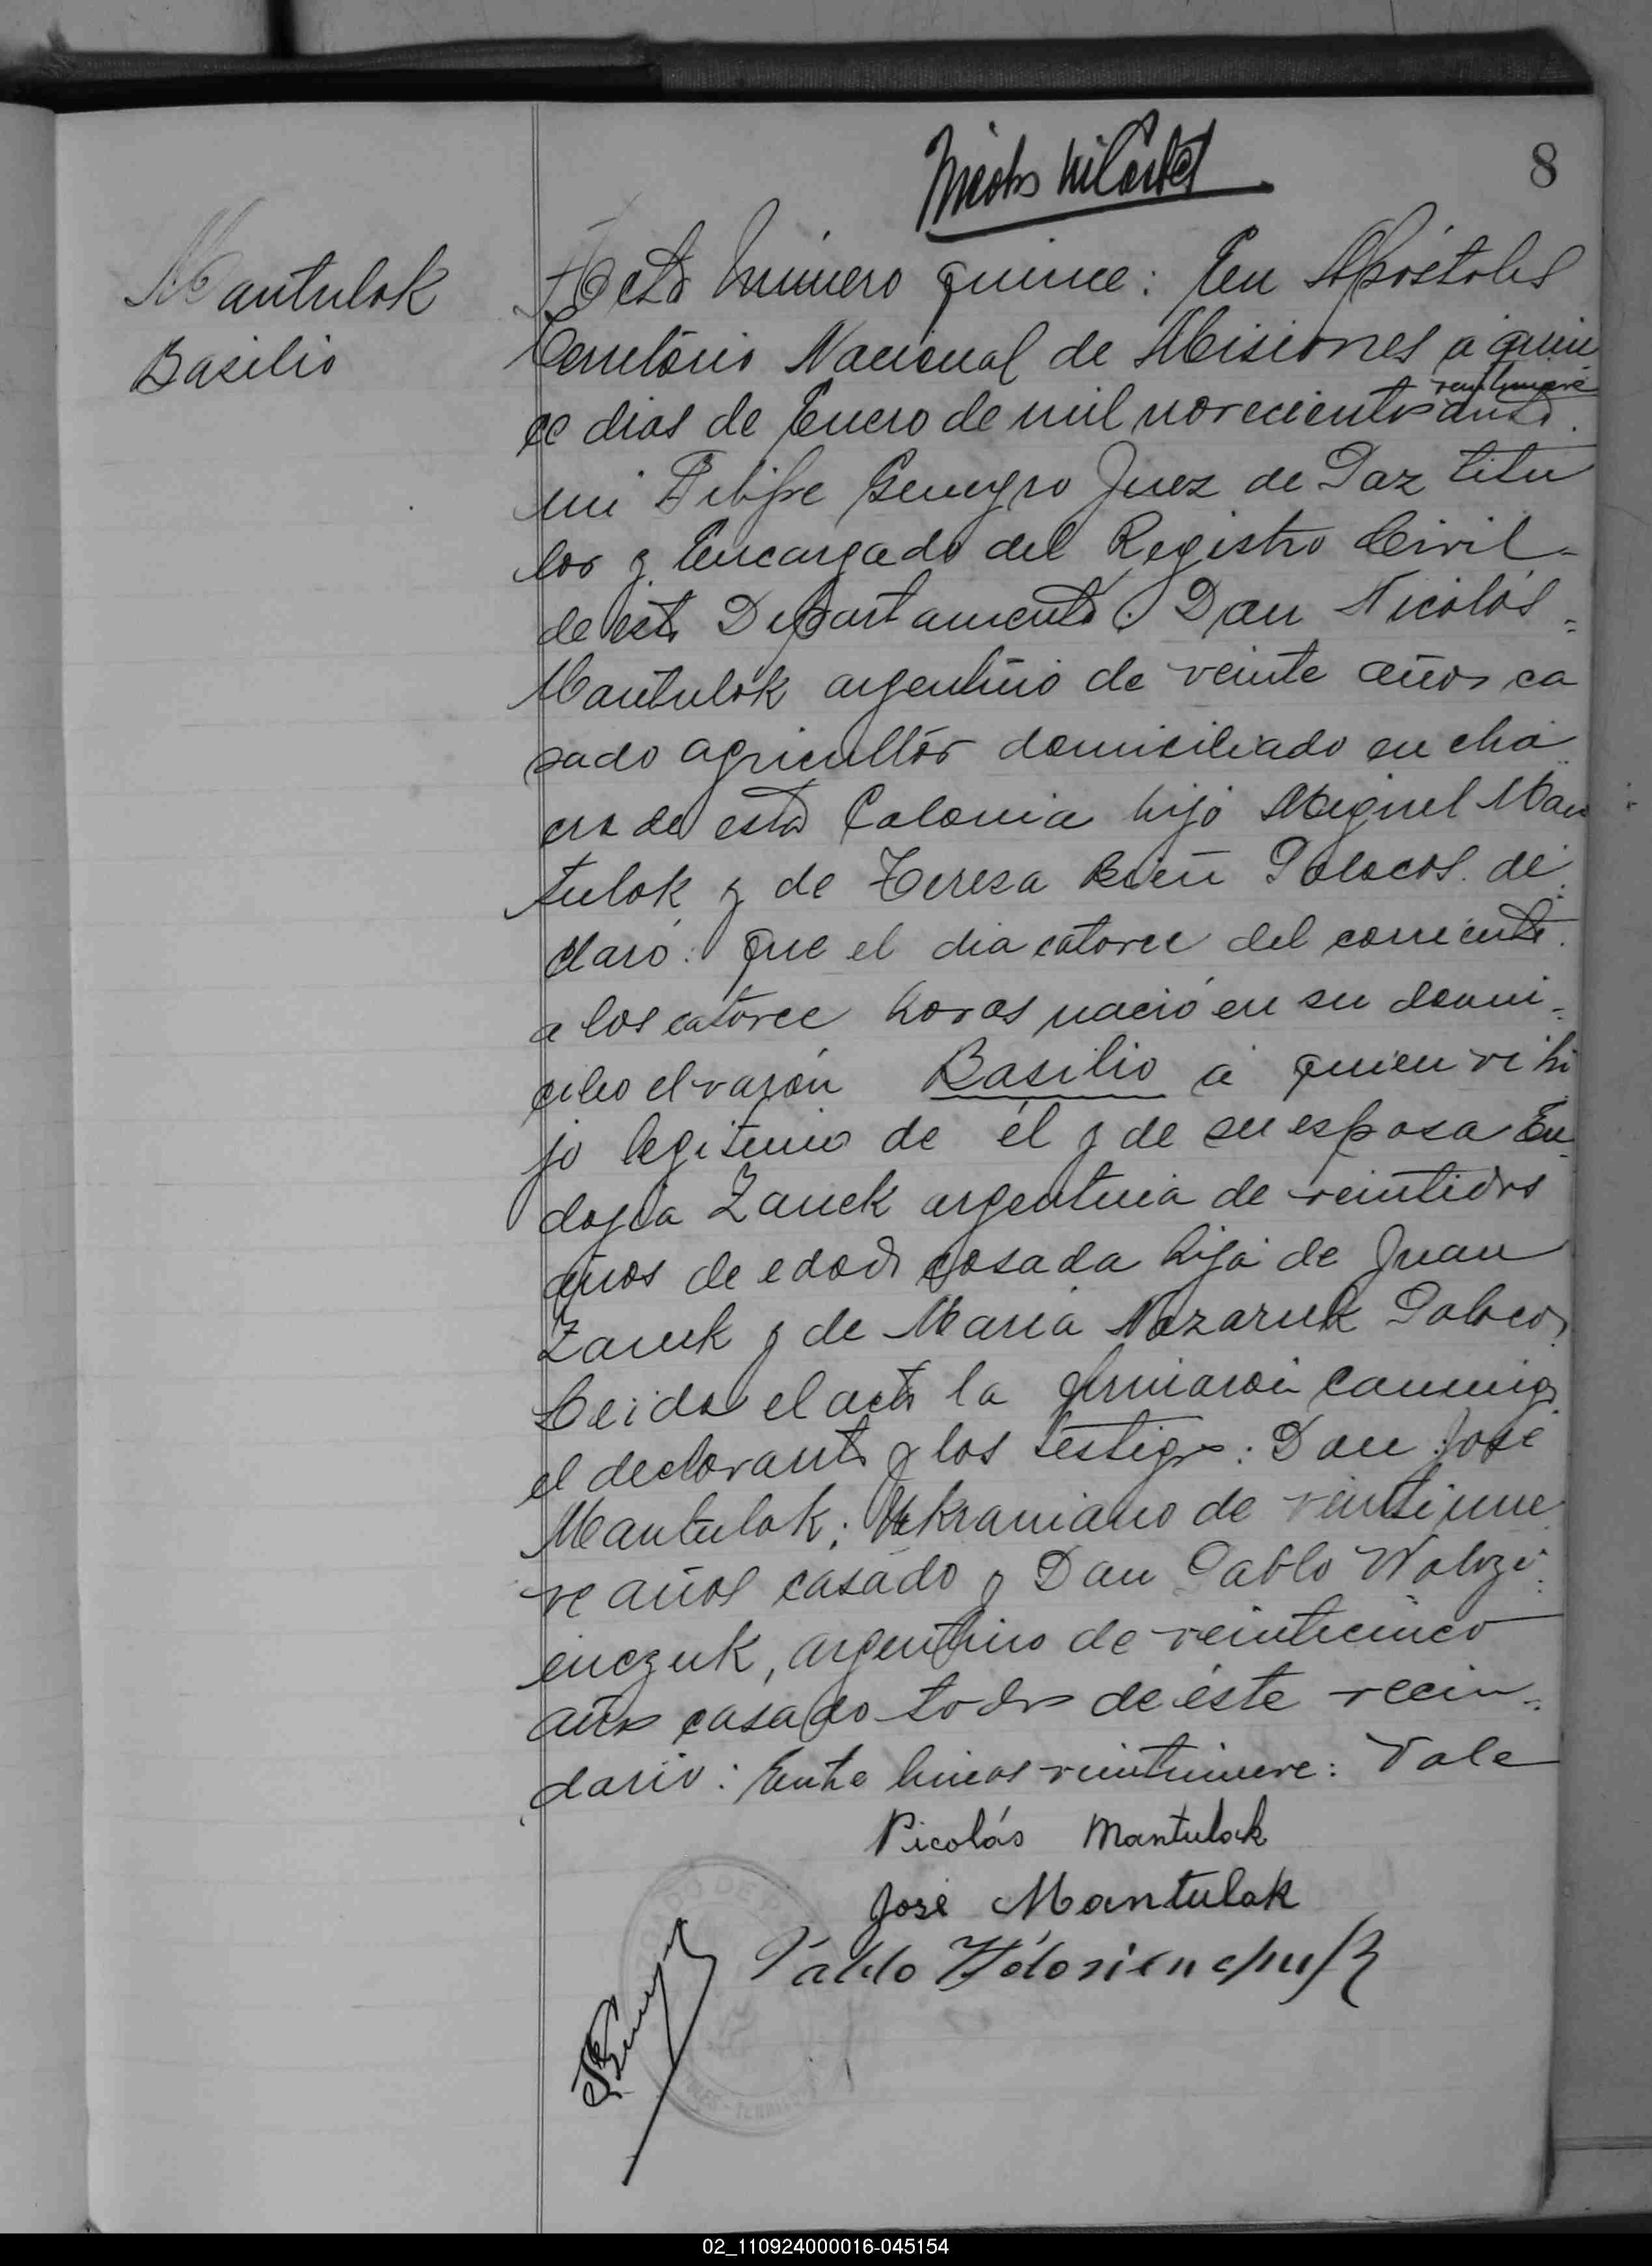 8
Mantulok
Basilio
Acta número quince: En Apóstoles
Territorio Nacional de Misiones a quin
ce dias de Enero de mil novecientos veintinueve ante
mi Felipe Benegro Juez de Paz titu
lar y Encargado del Registro Civil
de este Departamento: Don Nicolás
Mantulok argentino de veinte años ca
sado agricultor domiciliado en chá
cra de esta Colonia hijo Miguel Man
tulok y de Tereza Polacos. de
claró: que el dia catorce del corriente
a las catorce horas nació en su domi
cilio el varón Basilio a quien vi hi
jo legitimo de él y de su esposa Eu
dogia Zauek argentina de veintidos
años de edad casada hija de Juan
Zauek y de Maria Nazaruk Polacos
Leida el acta la firmaron conmigo
el declarante y los testigos: Don José
Mantulok; Ukraniano de veintinue
ve años casado y Don Pablo Wolozi
enczuk, argentino de veinticinco
años casado todos de éste vecin
dario: Entre lineas veintinueve: Vale
Nicolás Mantulok
José Mantulak
Pablo
02_110924000016-045154